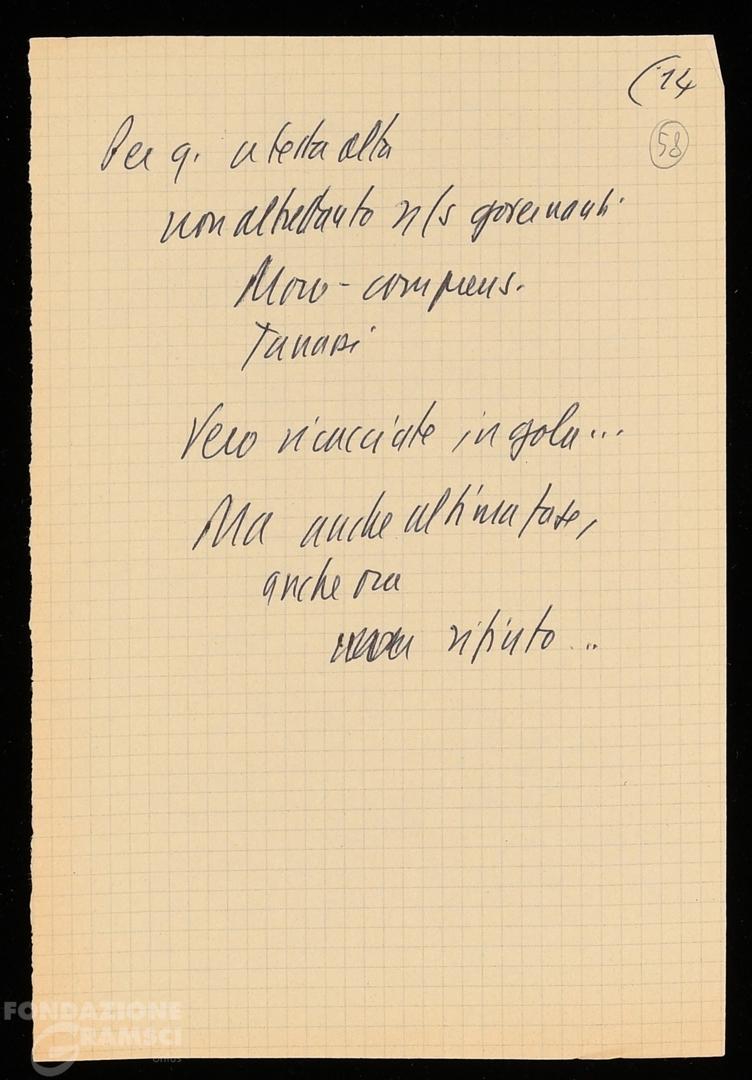 (14
58
Per q. a testa alta
non altrettanto n/s governanti
Moro - comprens.
Tanassi
Vero ricacciate in gola...
Ma anche ultima fase,
anche ora
rifiuto...
FONDAZIONE
GRAMSCI
onlus